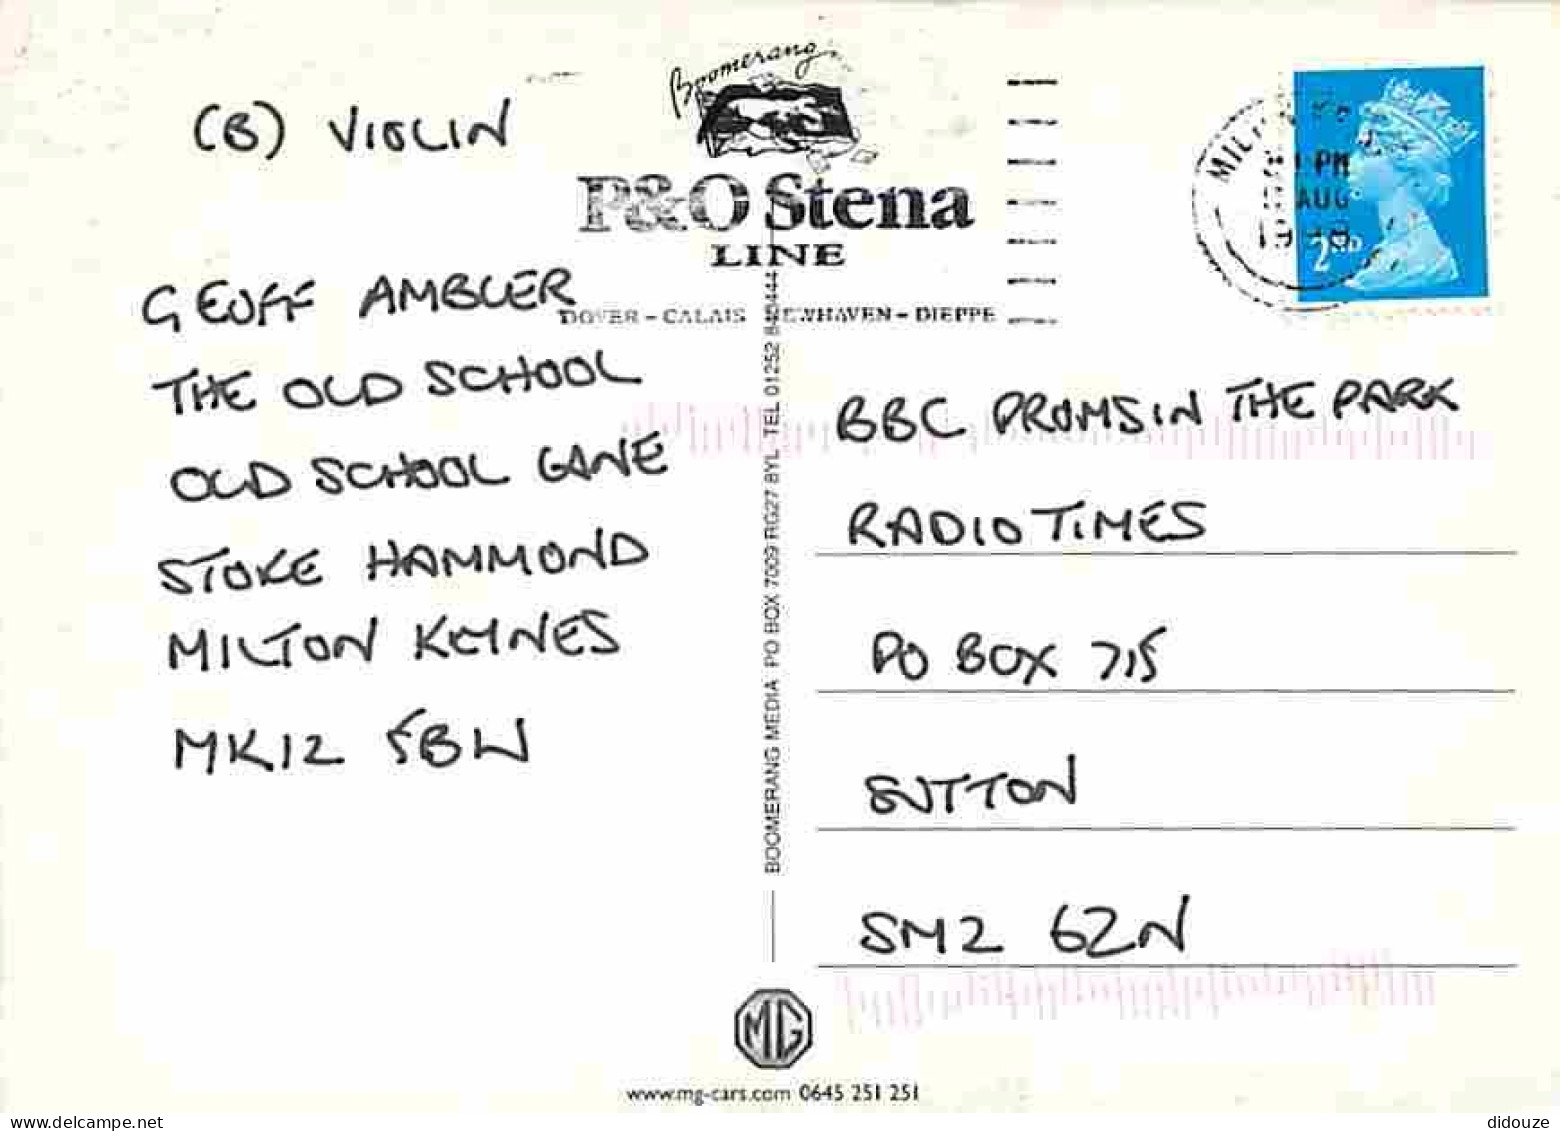 Boomerang
P&O Stena
LINE
DOVER - CALAIS NEWHAVEN - DIEPPE
PM
AUG
2ND
(B) VIOLIN
GEOFF AMBLER
THE OLD SCHOOL
OLD SCHOOL LANE
STOKE HAMMOND
MILTON KEYNES
MK12 5BW
BOOMERANG MEDIA PO BOX 7009 RG27 8YL TEL 01252
BBC PROMS IN THE PARK
RADIO TIMES
PO BOX 715
SUTTON
SM2 6ZN
MG
www.mg-cars.com 0645 251 251
didouze